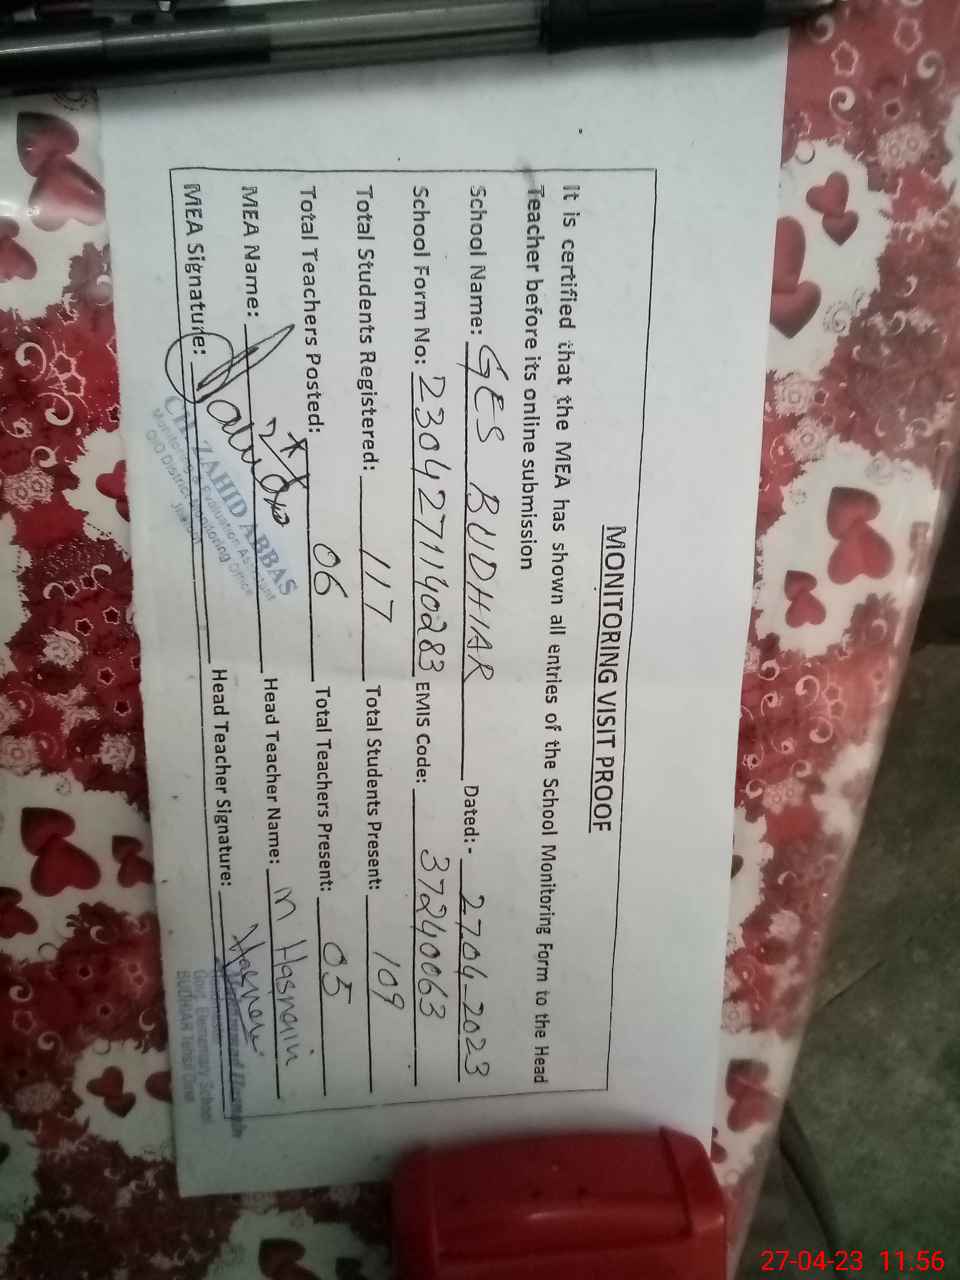 MONITORING VISIT PROOF
It is certified that the MEA has shown all entries of the School Monitoring Form to the Head
Teacher before its online submission
School Name: GES BUDHIAR Dated:- 27-04-2023
School Form No: 2304271140283 EMIS Code: 37240063
Total Students Registered: 117 Total Students Present: 109
Total Teachers Posted: 06 Total Teachers Present: 05
MEA Name: Head Teacher Name: M Hasnain
MEA Signature: Head Teacher Signature: Hasnain
CH. ZAHID ABBAS
Monitoring & Evaluation Assistant
O/O District Monitoring Office
Govt. Elementary School
BUDHIAR Tehsil
27-04-23 11.56